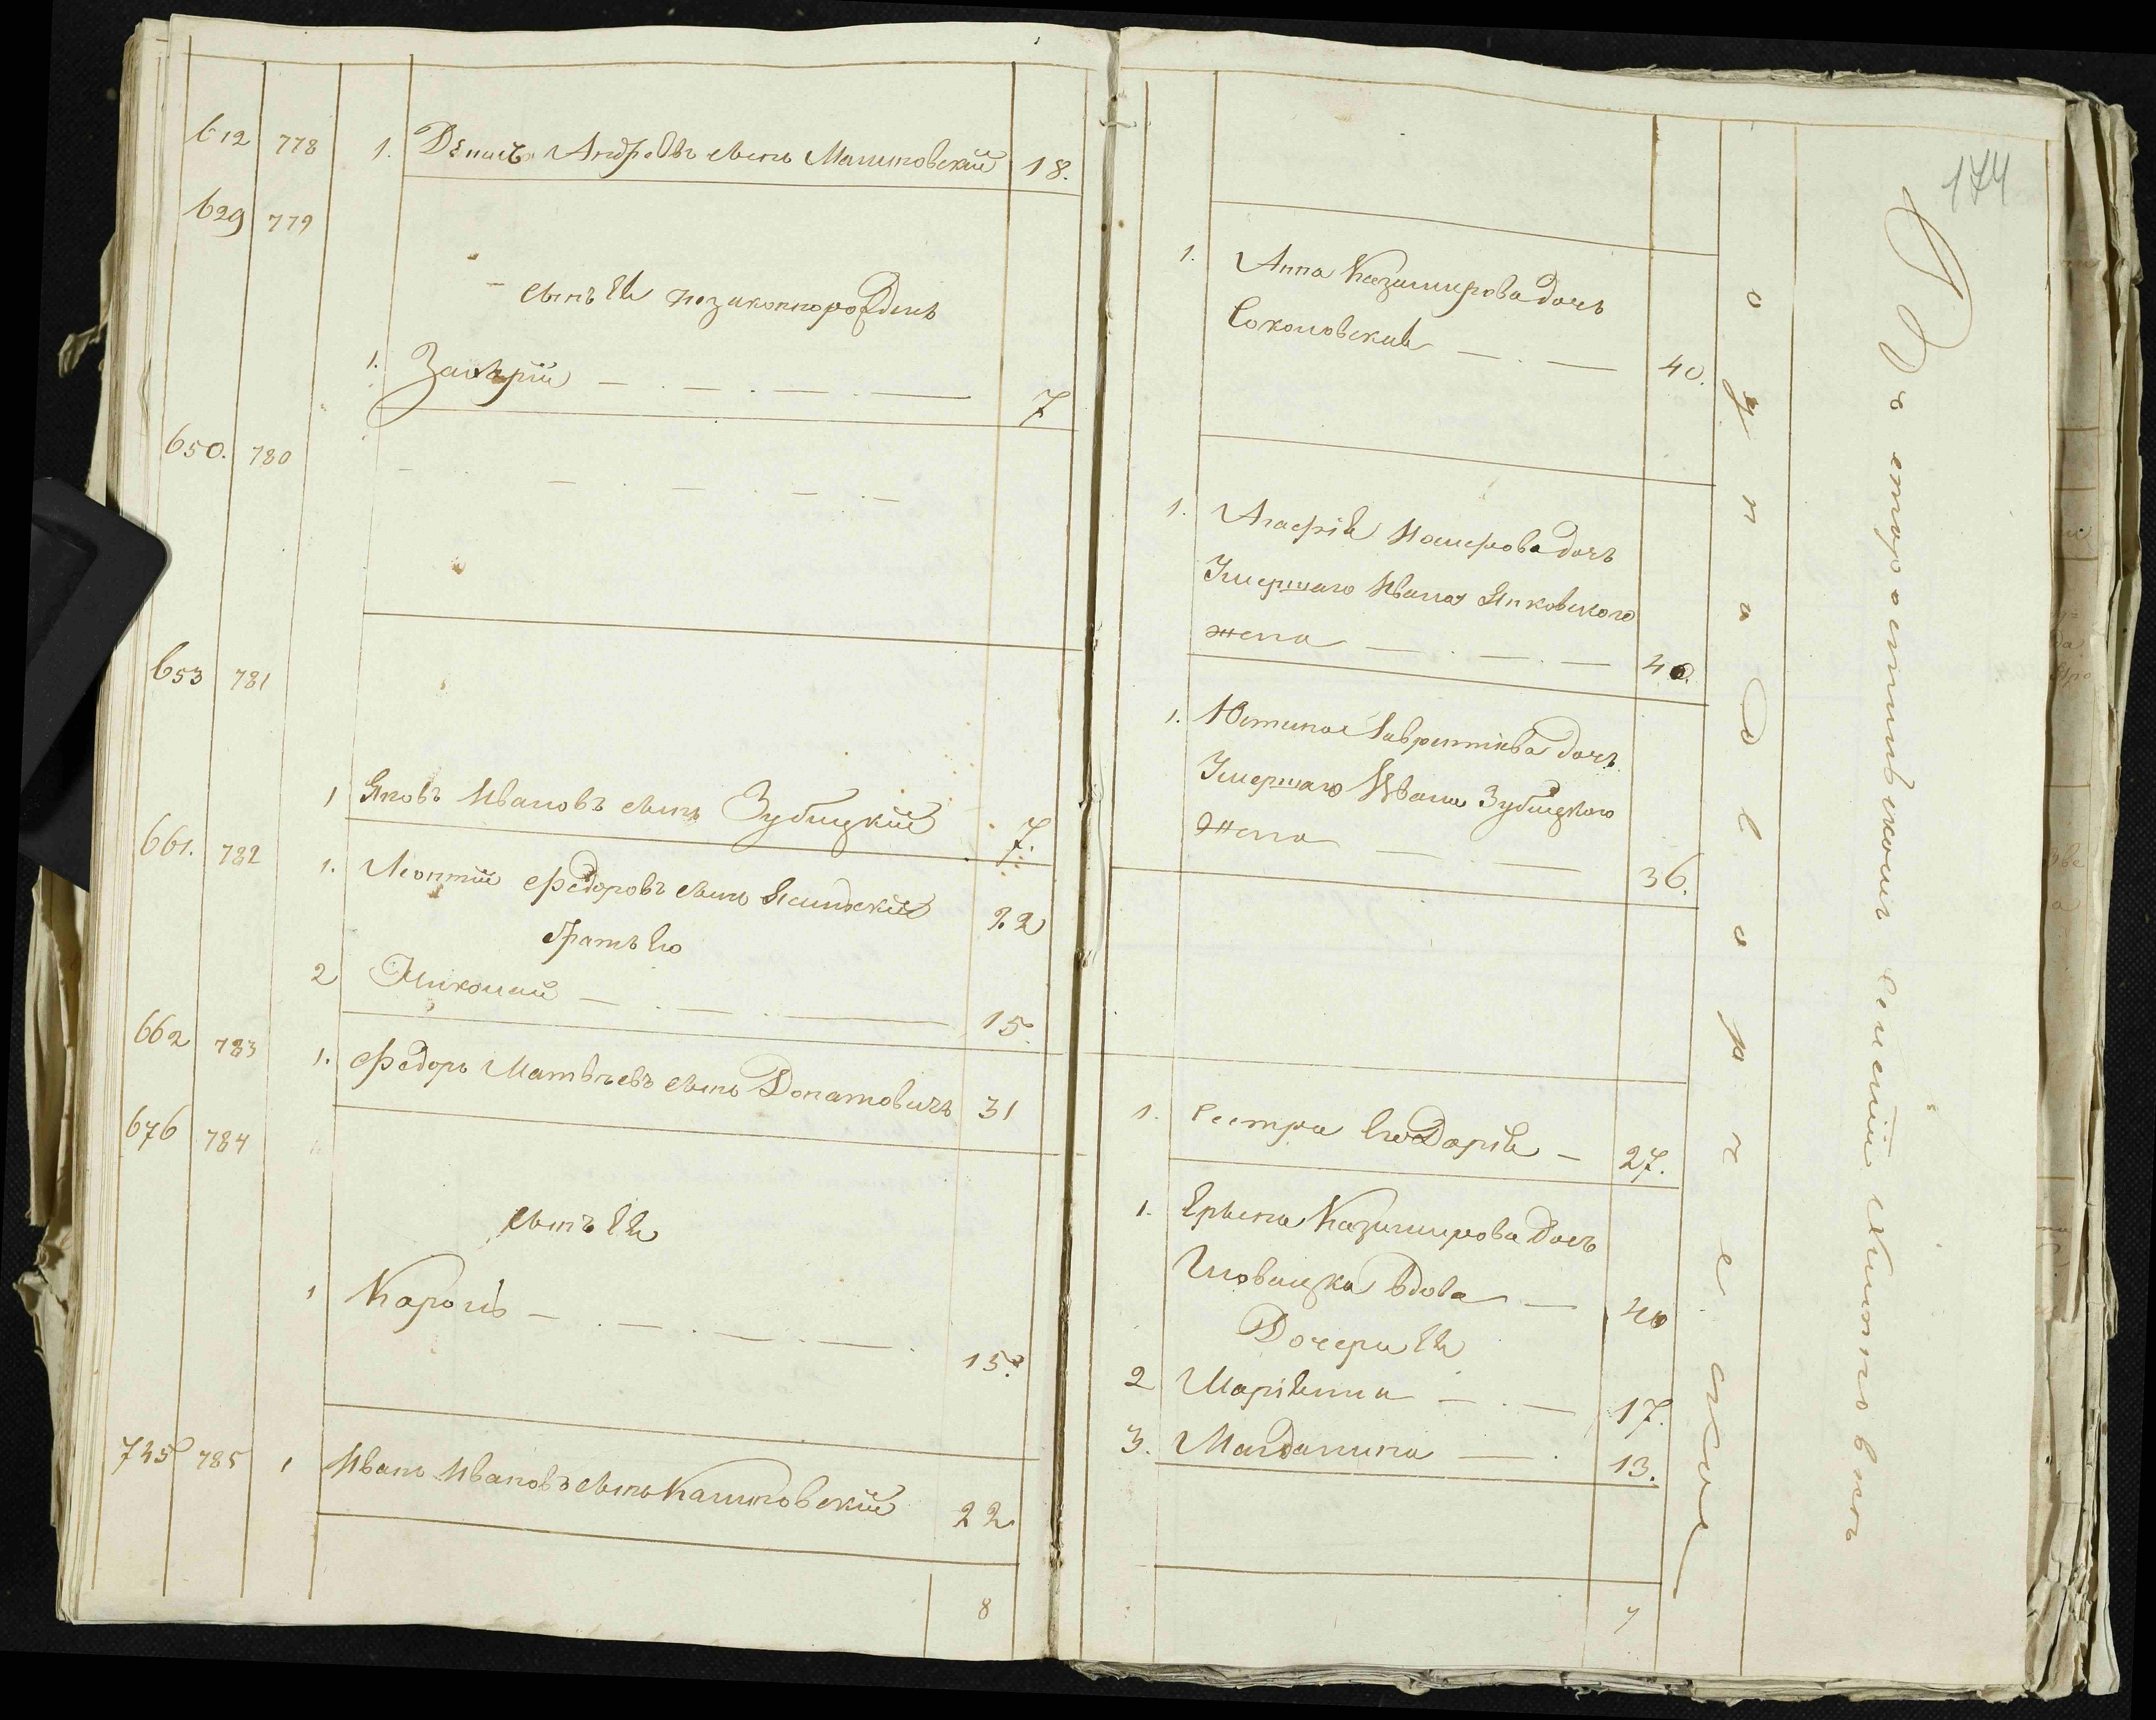 612 778 1. Денисъ Андреевъ сынъ Малиновский 18.
629 779
сынъ Ея незаконнорожденъ
1. Захарій — . — . — . — 7
650. 780
— . — . — . —
653 781
1 Яковъ Ивановъ сынъ Зубицкій 7.
661. 782 1. Леонтій Федоровъ сынъ Ясинскій 22
братъ Его
2 Николай — . — . — 15.
662 783 1. Федоръ Матвѣевъ сынъ Донатовичъ 31
676 784
сынъ Ея
1 Кароль — . — . — . — . 15.
745 785 1 Иванъ Ивановъ сынъ Калиновскій 22
8
174
1. Анна Казимирова дочь
Соколовская — . — 40.
1. Агафія дочь
Умершаго Ивана Янковского
жена — . — . — 40.
1. Юстина Лаврентіева дочь
Умершаго Ивана Зубицкого
жена — . — 36.
1. Сестра Его Дарія — 27.
1. Казимирова дочь
вдова — 40
Дочери Ея
2 Маріянна — . — 17.
3. Магдалина — . 13.
7
однодворческое
Въ